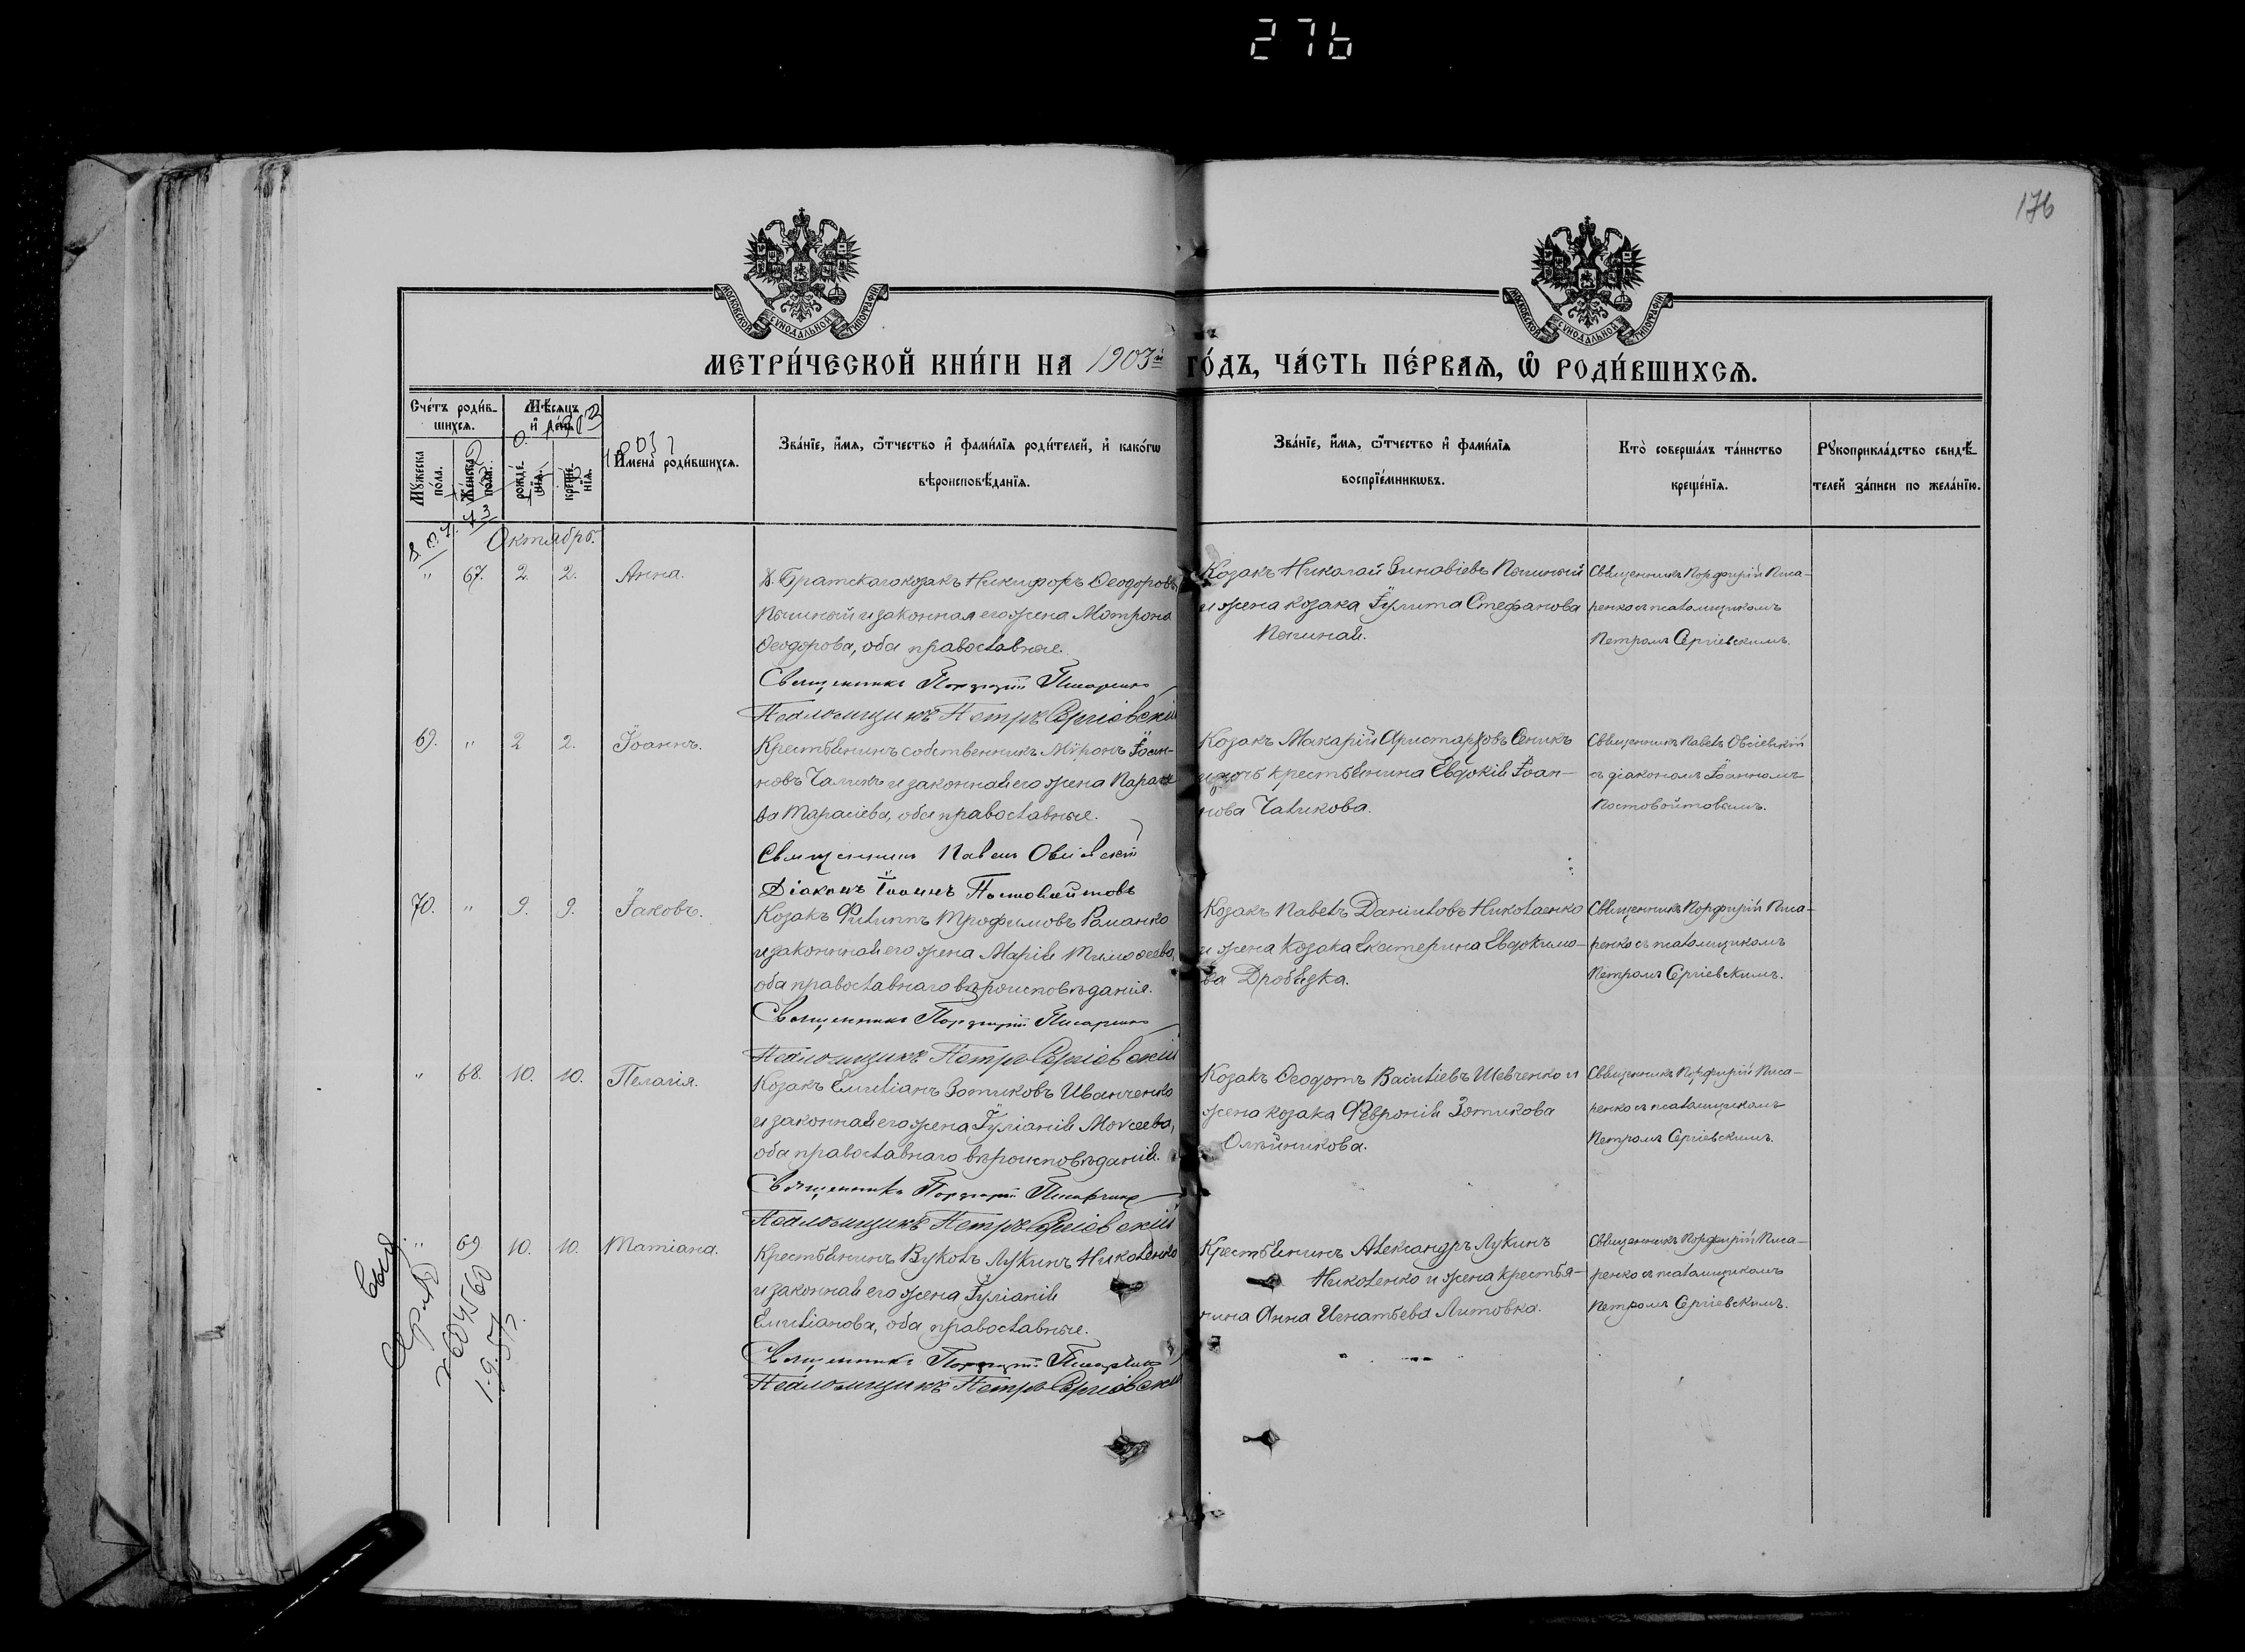 276
176
МОСКОВСКОЙ СУНОДАЛЬНОЙ ТИПОГРАФІИ
МОСКОВСКОЙ СУНОДАЛЬНОЙ ТИПОГРАФІИ
МЕТРИ́ЧЕСКОЙ КНИ́ГИ НА 1903й ГО́ДЪ, ЧА́СТЬ ПЕ́РВАѦ, Ѿ РОДИ́ВШИХСѦ.
Сче́тъ роди́в-
шихсѧ.
Мѣ́сѧцъ
и де́нь
Мꙋжеска по́ла.
Же́нска по́ла.
рожде́-
нїѧ.
креще́-
нїѧ.
Имена̀ роди́вшихсѧ.
Зва́нїе, и́мѧ, ѻ́тчество и фами́лїѧ роди́телей, и како́гѡ
вѣроисповѣ́данїѧ.
Зва́нїе, и́мѧ, ѻ́тчество и фами́лїѧ
воспрїе́мникѡвъ.
Кто̀ соверша́лъ та́инство
креще́нїѧ.
Рꙋкоприкла́дство свидѣ́-
телей за́писи по жела́нїю.
Октябрь.
" 67. 2. 2. Анна.
х. Братскаго козакъ Никифоръ Ѳеодоровъ
и законная его жена Матрона
Ѳеодорова, оба православные.
Священникъ Порфирій Писаренко
Псаломщикъ Петръ Сергіевскій
Козакъ Николай Зиновіевъ
и жена козака Іулита Стефанова
Священникъ Порфирій Писа-
ренко съ псаломщикомъ
Петромъ Сергіевскимъ.
69. " 2 2. Іоаннъ.
Крестьянинъ собственникъ Мѵронъ Іоан-
новъ и законная его жена Параске-
ва Тарасіева, оба православные.
Священникъ Павелъ Овсіевскій
Діаконъ Іоаннъ Постовойтовъ
Козакъ Макарій Аристарховъ Сеникъ
и дочь крестьянина Евдокія Іоан-
нова Чаликова.
Священникъ Павелъ Овсіевскій
съ діакономъ Іоанномъ
Постовойтовымъ.
70. " 9. 9. Іаковъ.
Козакъ Филиппъ Трофимовъ Романко
и законная его жена Марія Тимоѳеева,
оба православнаго вѣроисповѣданія.
Священникъ Порфирій Писаренко
Псаломщикъ Петръ Сергіевскій
Козакъ Павелъ Даніиловъ Николаенко
и жена козака Екатерина Евдокимо-
ва Дробязка.
Священникъ Порфирій Писа-
ренко съ псаломщикомъ
Петромъ Сергіевскимъ.
" 68. 10. 10. Пелагія.
Козакъ Емиліанъ Зотиковъ Иванченко
и законная его жена Іуліанія Моѵсеева,
оба православнаго вѣроисповѣданія.
Священникъ Порфирій Писаренко
Псаломщикъ Петръ Сергіевскій
Козакъ Ѳеодотъ Василіевъ Шевченко и
жена козака Февронія Зотикова
Олѣйникова.
Священникъ Порфирій Писа-
ренко съ псаломщикомъ
Петромъ Сергіевскимъ.
" 69 10. 10. Татіана.
Крестьянинъ Вуколъ Лукинъ Николенко
и законная его жена Іуліанія
Емиліанова, оба православные.
Священникъ Порфирій Писаренко
Псаломщикъ Петръ Сергіевскій
Крестьянинъ Александръ Лукинъ
Николенко и жена крестья-
нина Анна Игнатьева Литовка.
Священникъ Порфирій Писа-
ренко съ псаломщикомъ
Петромъ Сергіевскимъ.